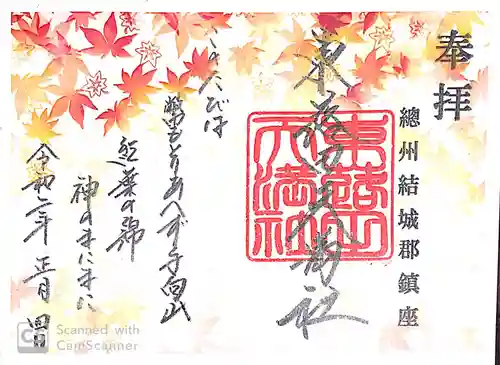 奉拝
總州結城郡鎮座
東蕗田天満社
東蕗田
天満社
このたびは
幣もとりあへず手向山
紅葉の錦
神のまにまに
令和二年 正月 四日
CS
Scanned with
CamScanner